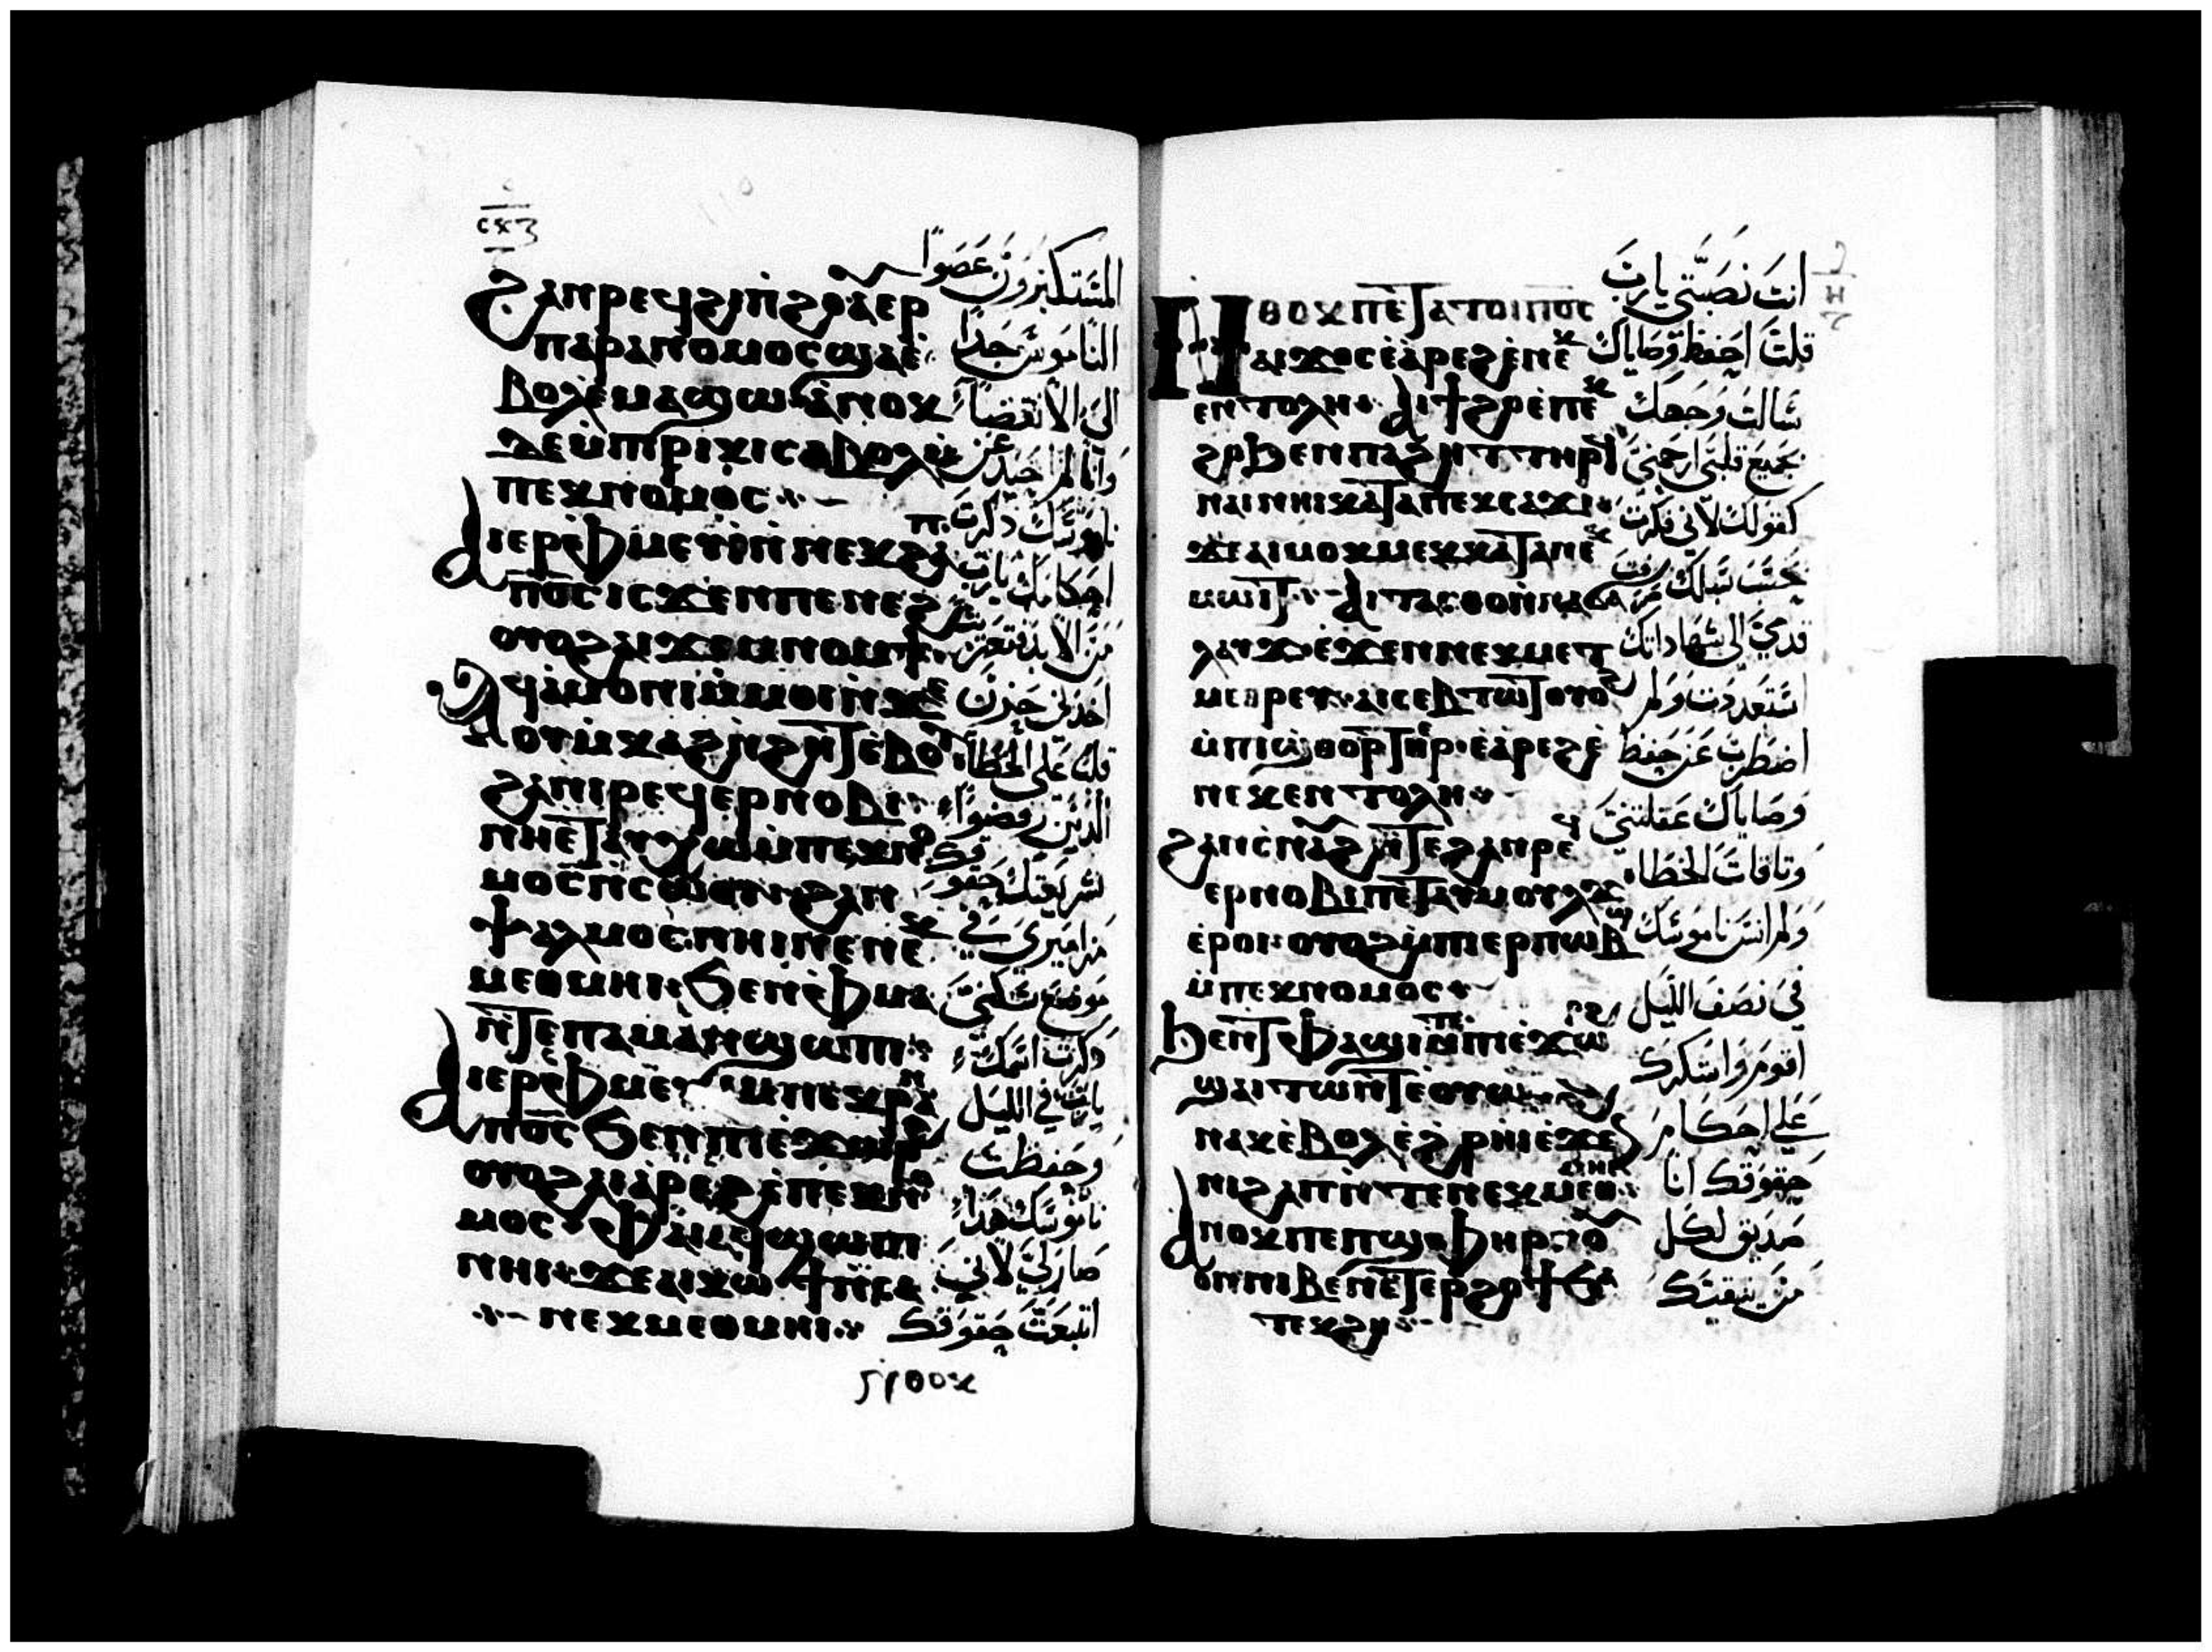 ⲥⲝⲍ
ϩⲁⲛⲣⲉϥϩⲓⲡ̀ϩⲟ̀ⲁⲉⲣ
ⲡⲁⲣⲁⲛⲟⲙⲟⲥϣⲁⲉ̀
ⲃⲟⲗⲉ̀ⲙⲁϣⲱ ⲁ̀ⲛⲟⲕ
ⲇⲉⲙ̀ⲡⲓⲣⲓⲕⲓⲥⲁⲃⲟⲗⲙ̀
ⲡⲉⲕⲛⲟⲙⲟⲥ
ⲁⲓⲉⲣⲫ̀ⲙⲉⲩⲓ̀ⲛ̀ⲛⲉⲕϩⲁⲡ
ⲡ̅ⲟ̅ⲥ̅ ⲓⲥϫⲉⲛⲡⲉⲛⲉϩ
ⲟⲩⲟϩⲁⲓϫⲉⲙⲛⲟⲙϯ
ⲟⲩⲙ̀ⲕⲁϩⲛ̀ϩⲏⲧⲉ̀ⲃⲟ
ϩⲁⲛⲓⲣⲉϥⲉⲣⲛⲟⲃⲓ
ⲛⲏⲉ̀ⲧⲁⲩⲭⲱⲙ̀ⲡⲉⲕⲛⲟ
ⲙⲟⲥⲛ̀ⲥⲱⲟⲩ ϩⲁⲛ
ⲯⲁⲗⲙⲟⲥⲛⲏⲓⲛⲉⲛⲉⲕ
ⲙⲉⲑⲙⲏⲓ ϧⲉⲛⲫ̀ⲙⲁ
ⲛ̀ⲧⲉⲡⲁⲙⲁⲛϣⲱⲡⲓ
ⲁⲓⲉⲣⲫ̀ⲙⲉⲩⲓ̀ⲙⲡⲉⲕⲣⲁⲛ
ⲡ̅ⲟ̅ⲥ̅ ϧⲉⲛⲡⲓⲉ̀ϫⲱⲣϩ
ⲟⲩⲟϩⲁⲓⲁ̀ⲣⲉϩⲉ̀ⲡⲉⲕⲛⲟ
ⲙⲟⲥ ⲫⲁⲓⲁϥϣⲱⲡⲓ
ⲛⲏⲓ ϫⲉⲁⲓⲕⲱϯⲛ̀ⲥⲁ
ⲛⲉⲕⲙⲉⲑⲙⲏⲓ
المستكبرون عصوا
الناموس جدا
الى الانقضاء
وانا لم احيد عن
ناموسك ذكرت
احكامك يارب
من الابد فتعزيت
اخدني حزن
قلب على الخطاة
الدين رفضوا
شريعتك حقوقك
مزاميري في
موضع سكني
ذكرت اسمك
يارب في الليل
وحفظت
ناموسك هذا
صار لي لاني
اتبعت حقوقك
ⲛⲑⲟⲕ
ⲛⲑⲟⲕⲡⲉⲧⲁⲧⲟⲓⲡ̅ⲟ̅ⲥ̅
ⲁⲓϫⲟⲥⲉ̀ⲁ̀ⲣⲉϩⲉ̀ⲛⲉⲕ
ⲉⲛⲧⲟⲗⲏ ⲁⲓϯϩⲟ̀ⲙⲡⲉⲕ
ϩⲟϧⲉⲛⲡⲁϩⲏⲧⲧⲏⲣϥ
ⲛⲁⲓⲛⲏⲓⲕⲁⲧⲁⲡⲉⲕⲥⲁϫⲓ
ϫⲉⲁⲓⲙⲟⲕⲙⲉⲕⲕⲁⲧⲁⲛⲉⲕ
ⲙⲱⲓⲧ ⲁⲓⲧⲁⲥⲑⲟⲛ̀ⲛⲁϭⲁ
ⲗⲁⲩϫⲉ̀ϫⲉⲛⲛⲉⲕⲙⲉⲧ
ⲙⲉⲑⲣⲉⲩ ⲁⲓⲥⲉⲃⲧⲱⲧⲟⲩⲟϩ
ⲙ̀ⲡⲓϣⲑⲟⲣⲧⲉⲣ ⲉ̀ⲁⲣⲉϩⲉ̀
ⲛⲉⲕⲉⲛⲧⲟⲗⲏ
ϩⲁⲛⲥ̀ⲛⲁϩⲛ̀ⲧⲉϩⲁⲛⲣⲉϥ
ⲉⲣⲛⲟⲃⲓⲡⲉⲧⲁⲩⲙⲟⲩⲗϫ
ⲉ̀ⲣⲟⲓ ⲟⲩⲟϩⲙ̀ⲡⲓⲉⲣⲡⲱⲃϣ
ⲙ̀ⲡⲉⲕⲛⲟⲙⲟⲥ
ϧⲉⲛⲧⲫⲁϣⲓⲙ̀ⲡⲓⲉ̀ϫⲱⲣϩ
ϣⲁⲓⲧⲱⲛⲧⲉⲟⲩⲱⲛϩ
ⲛⲁⲕⲉ̀ⲃⲟⲗⲉ̀ϩ̀ⲣⲏⲓⲉ̀ϫⲉⲛ
ⲛⲓϩⲁⲡⲛ̀ⲧⲉⲛⲉⲕⲙⲉⲑⲙⲏⲓ
ⲁⲛⲟⲕⲡⲉⲡϣⲫⲏⲣⲛ̀ⲟⲩ
ⲟⲛⲛⲓⲃⲉⲛⲉⲧⲉⲣϩⲟϯϧⲁ
ⲧⲉⲕϩⲏ
انت نصبتي يارب
قلت احفظ وصاياك
سالت وجهك
بجميع قلبي ارحمني
كقولك لاني فكرت
بحسب سبلك رددت
قدمي الى شهاداتك
استعددت ولم
اضطرب عن حفظ
وصاياك عقلتني
وتاقات الخطاه
ولم انس ناموسك
في نصف الليل
اقوم واشكرك
على احكام
حقوقك انا
صديق لكل
من يتقيك